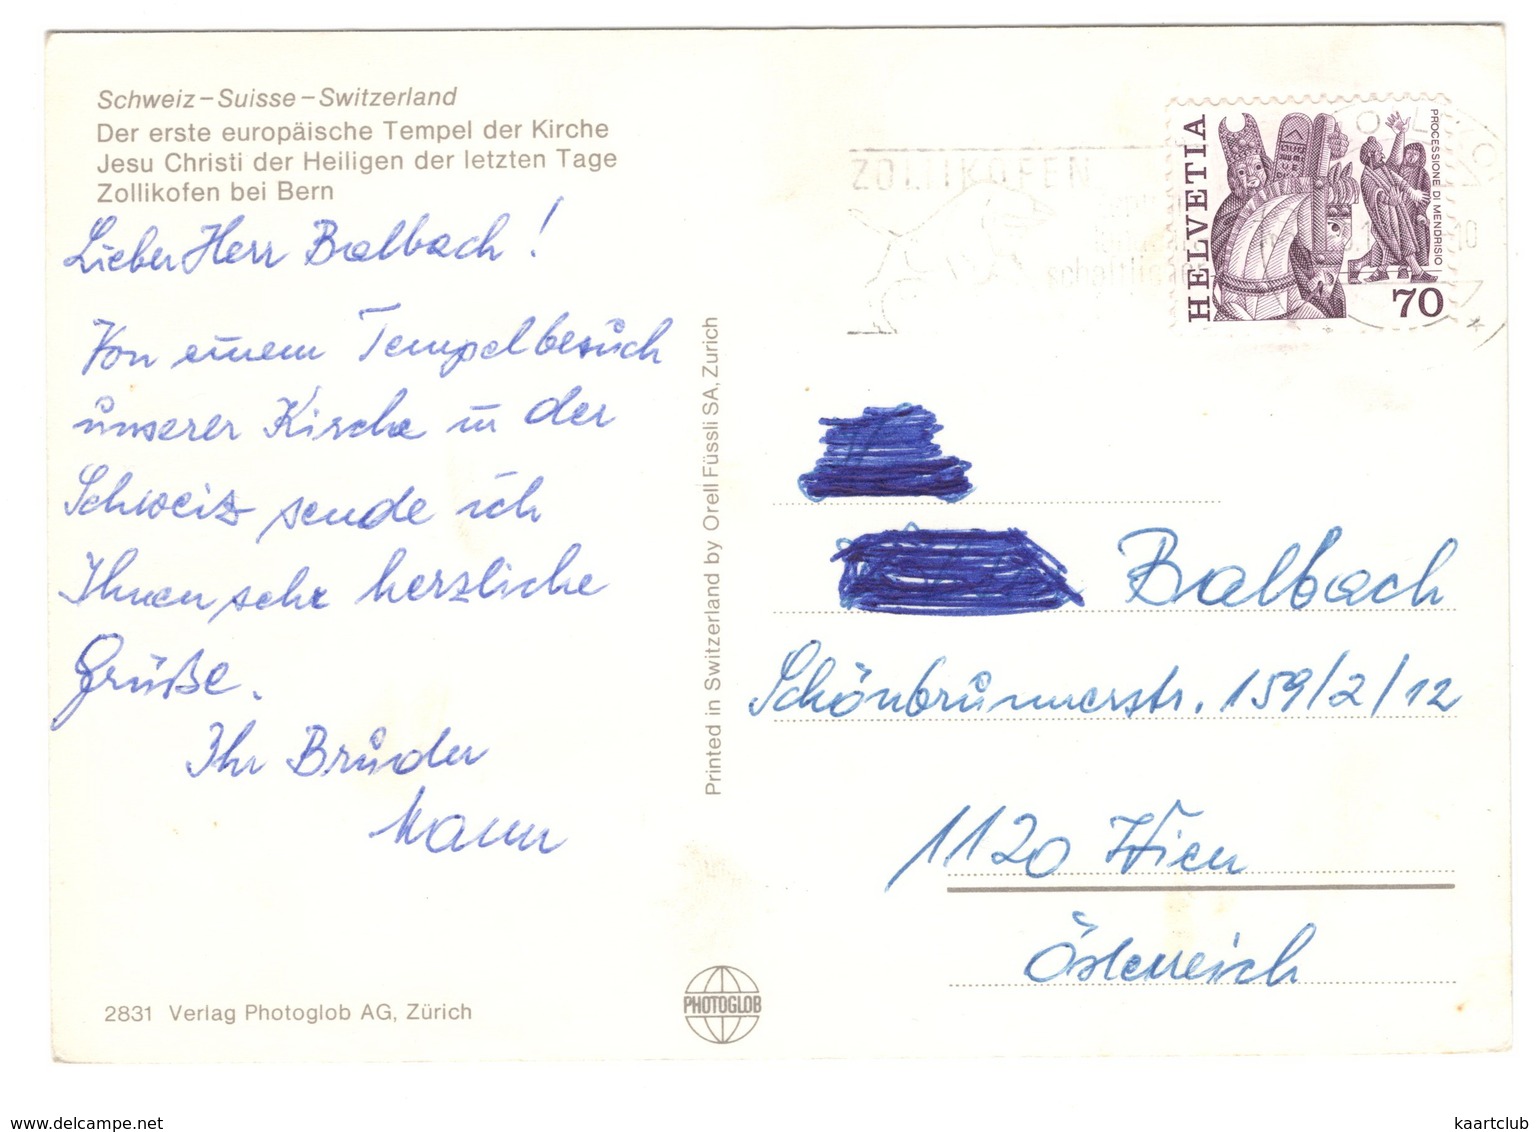 Schweiz – Suisse – Switzerland
Der erste europäische Tempel der Kirche
Jesu Christi der Heiligen der letzten Tage
Zollikofen bei Bern
Lieber Herr Balbach!
Von einem Tempelbesuch
unserer Kirche in der
Schweiz sende ich
Ihnen sehr herzliche
Grüße.
Ihr Bruder
Mann
2831 Verlag Photoglob AG, Zürich
Printed in Switzerland by Orell Füssli SA, Zurich
PHOTOGLOB
ZOLLIKOFEN
HELVETIA
PROCESSIONE DI MENDRISIO
70
Balbach
Schönbrunnerstr. 159/2/12
1120 Wien
Österreich
www.delcampe.net
kaartclub